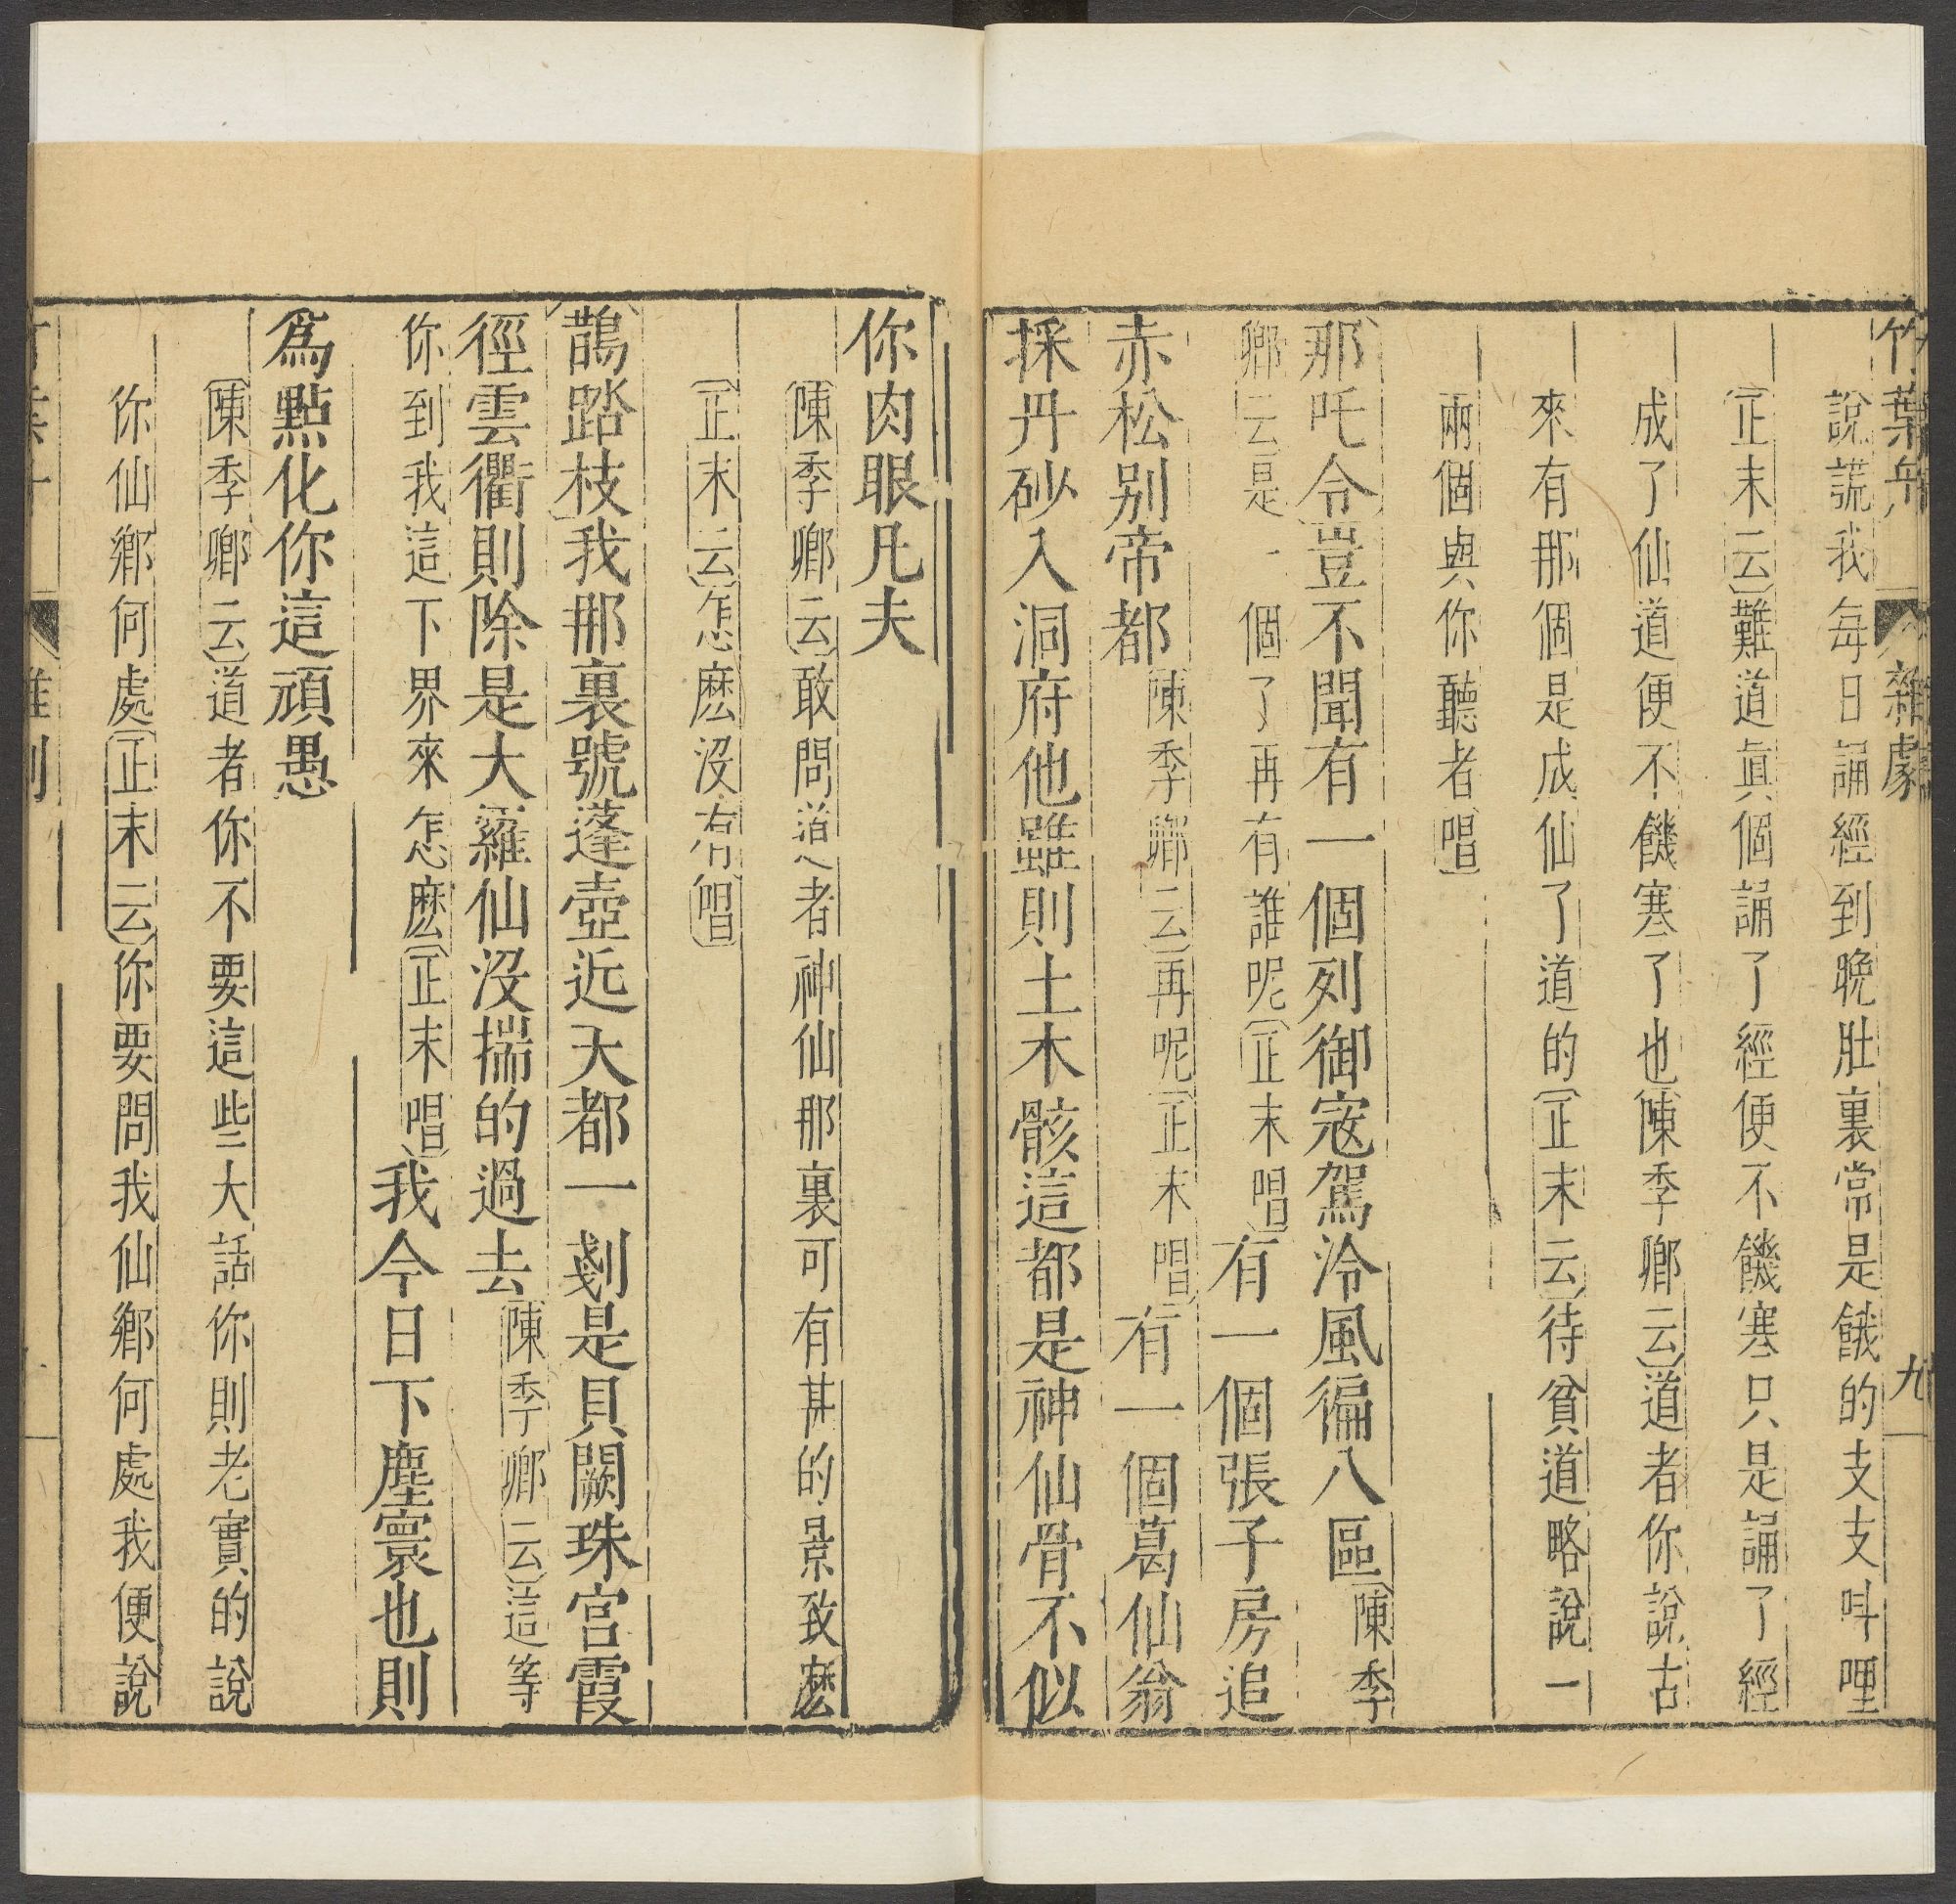 竹葉舟 雜劇 九
說謊我每日誦經到晚肚裏常是餓的支支呌哩
正末云難道眞個誦了經便不饑寒只是誦了經
成了仙道便不饑寒了也陳季卿云道者你說古
來有那個是成仙了道的正末云待貧道略說一
兩個與你聽者唱
那吒令豈不聞有一個列御宼駕泠風徧八區陳季
卿云是一個了再有誰呢正末唱有一個張子房追
赤松别帝都陳季卿云再呢正末唱有一個葛仙翁
採丹砂入洞府他雖則土木骸這都是神仙骨不似
你肉眼凡夫
陳季卿云敢問道者神仙那裏可有甚的景致麽
正末云怎麽沒有唱
鵲踏枝我那裏號蓬壺近天都一剗是貝闕珠宮霞
徑雲衢則除是大羅仙沒揣的過去陳季卿云這等
你到我這下界來怎麽正末唱我今日下塵寰也則
爲點化你這頑愚
陳季卿云道者你不要這些大話你則老實的說
你仙鄉何處正末云你要問我仙鄉何處我便說